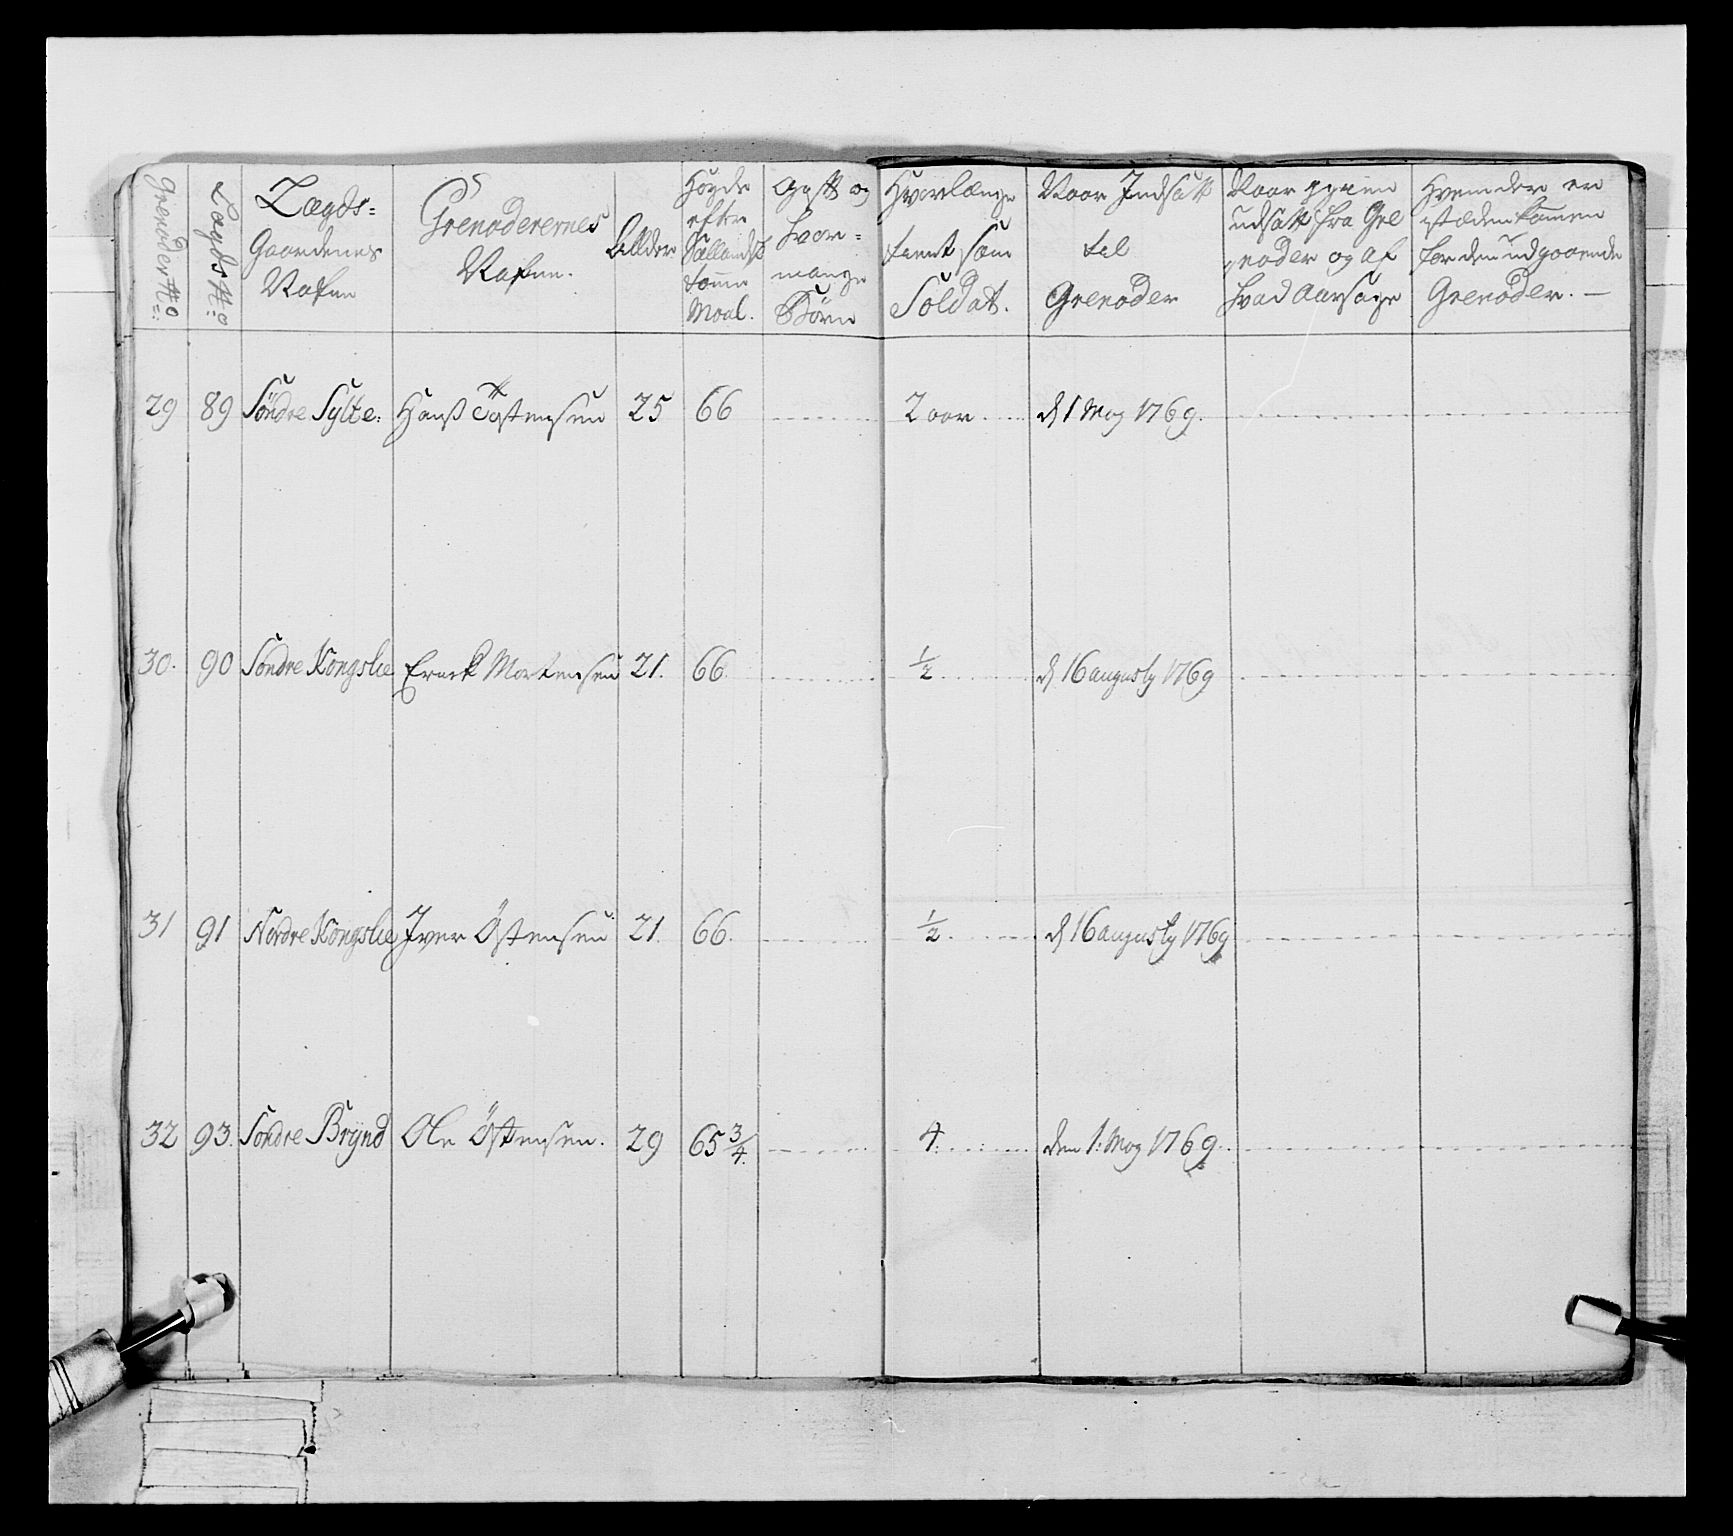 Grenoder No
Lægds No
Lægds=
Gaardenes
Nafne
Grenoderernes
Nafne.
Allder
Høyde
efter
Sællandsk
tomme
Maal.
Gift og
hvor=
mange
Børn
Hvorlænge
tient som
Soldat.
Naar Indsatt
til
Grenoder
Naar igien
udsatt fra Gre
noder og af
hvad Aarsage
Hvem der er
istæden kommen
for den udgaaende
Grenoder. —
29 89 Söndre Sylte: Hanß Tostensen 25 66 2 aar. d 1 May 1769.
30. 90 Söndre Kongslie Erick Mortensen 21. 66. ½ d 16 augusty 1769
31 91 Nordre Kongslie Iver Östensen 21. 66. ½. d 16 augusty 1769
32 93. Söndre Brÿnd Ole Östensen. 29 65 ¾. 4. den 1. May 1769.